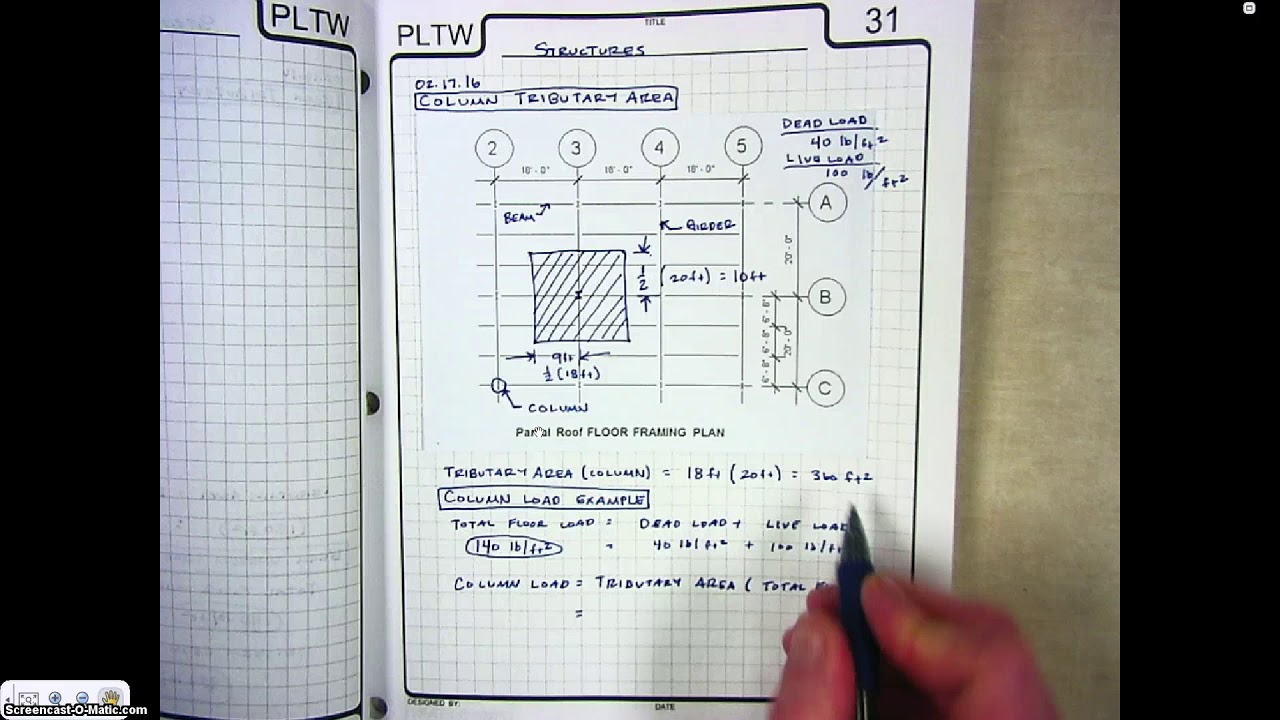 PLTW
PLTW
TITLE
31
STRUCTURES
02.17.16
COLUMN TRIBUTARY AREA
DEAD LOAD
40 lb/ft2
LIVE LOAD
100 lb/ft2
2 3 4 5
18'-0" 18'-0" 18'-0"
A
BEAM
GIRDER
20'-0"
1/2 (20ft) = 10ft
B
20'-0"
9ft
1/2 (18ft)
C
COLUMN
Partial Roof FLOOR FRAMING PLAN
TRIBUTARY AREA (COLUMN) = 18ft (20ft) = 360 ft2
COLUMN LOAD EXAMPLE
TOTAL FLOOR LOAD = DEAD LOAD + LIVE LOAD
140 lb/ft2 = 40 lb/ft2 + 100 lb/ft
COLUMN LOAD = TRIBUTARY AREA ( TOTAL
=
DESIGNED BY:
DATE
Screencast-O-Matic.com